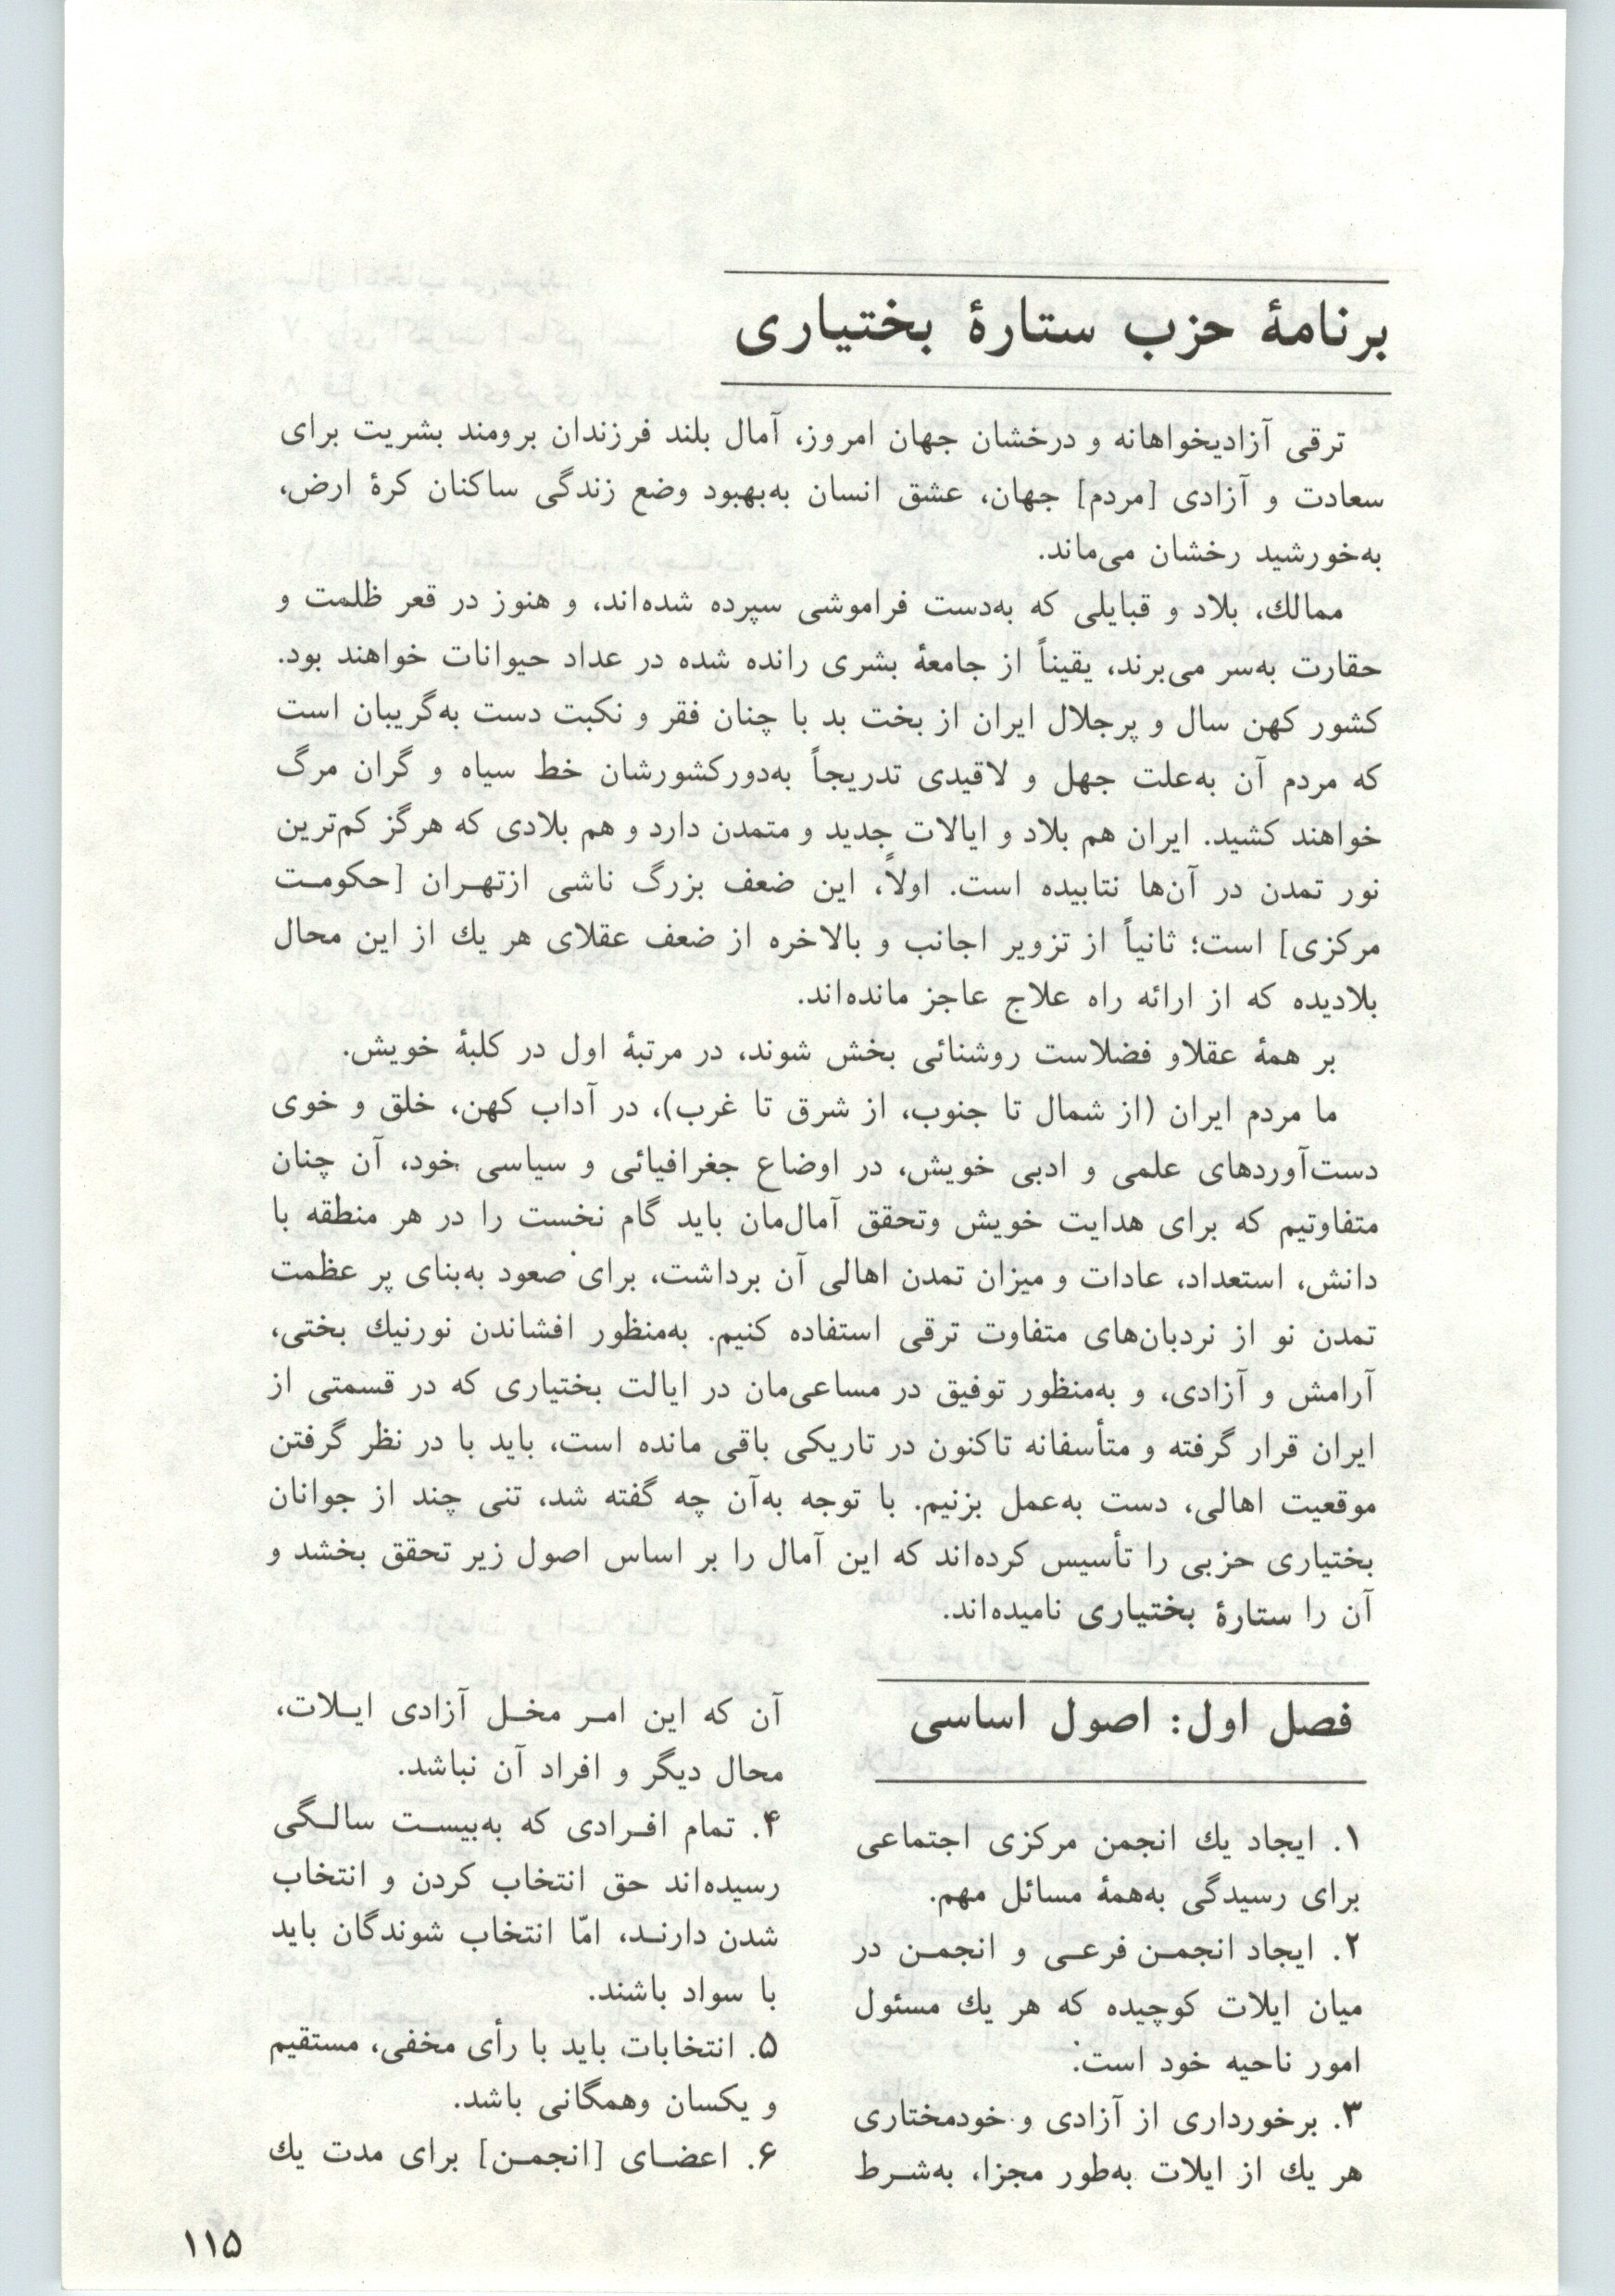 برنامهٔ حزب ستارهٔ بختیاری
ترقی آزادیخواهانه و درخشان جهان امروز، آمال بلند فرزندان برومند بشریت برای
سعادت و آزادی [مردم] جهان، عشق انسان به‌بهبود وضع زندگی ساکنان کرهٔ ارض،
به‌خورشید رخشان می‌ماند.
ممالك، بلاد و قبایلی که به‌دست فراموشی سپرده شده‌اند، و هنوز در قعر ظلمت و
حقارت به‌سر می‌برند، یقیناً از جامعهٔ بشری رانده شده در عداد حیوانات خواهند بود.
کشور کهن سال و پرجلال ایران از بخت بد با چنان فقر و نکبت دست به‌گریبان است
که مردم آن به‌علت جهل و لاقیدی تدریجاً به‌دورکشورشان خط سیاه و گران مرگ
خواهند کشید. ایران هم بلاد و ایالات جدید و متمدن دارد و هم بلادی که هرگز کم‌ترین
نور تمدن در آن‌ها نتابیده است. اولاً، این ضعف بزرگ ناشی ازتهـران [حکومـت
مرکزی] است؛ ثانیاً از تزویر اجانب و بالاخره از ضعف عقلای هر یك از این محال
بلادیده که از ارائه راه علاج عاجز مانده‌اند.
بر همهٔ عقلاو فضلاست روشنائی بخش شوند، در مرتبهٔ اول در کلبهٔ خویش.
ما مردم ایران (از شمال تا جنوب، از شرق تا غرب)، در آداب کهن، خلق و خوی
دست‌آوردهای علمی و ادبی خویش، در اوضاع جغرافیائی و سیاسی خود، آن چنان
متفاوتیم که برای هدایت خویش وتحقق آمال‌مان باید گام نخست را در هر منطقه با
دانش، استعداد، عادات و میزان تمدن اهالی آن برداشت، برای صعود به‌بنای پر عظمت
تمدن نو از نردبان‌های متفاوت ترقی استفاده کنیم. به‌منظور افشاندن نورنیك بختی،
آرامش و آزادی، و به‌منظور توفیق در مساعی‌مان در ایالت بختیاری که در قسمتی از
ایران قرار گرفته و متأسفانه تاکنون در تاریکی باقی مانده است، باید با در نظر گرفتن
موقعیت اهالی، دست به‌عمل بزنیم. با توجه به‌آن چه گفته شد، تنی چند از جوانان
بختیاری حزبی را تأسیس کرده‌اند که این آمال را بر اساس اصول زیر تحقق بخشد و
آن را ستارهٔ بختیاری نامیده‌اند.
فصل اول: اصول اساسی
۱. ایجاد یك انجمن مرکزی اجتماعی
برای رسیدگی به‌همهٔ مسائل مهم.
۲. ایجاد انجمـن فرعـی و انجمـن در
میان ایلات کوچیده که هر یك مسئول
امور ناحیه خود است.
۳. برخورداری از آزادی و خودمختاری
هر یك از ایلات به‌طور مجزا، به‌شـرط
آن که این امـر مخـل آزادی ایـلات،
محال دیگر و افراد آن نباشد.
۴. تمام افـرادی که به‌بیسـت سالـگی
رسیده‌اند حق انتخاب کردن و انتخاب
شدن دارنـد، امّا انتخاب شوندگان باید
با سواد باشند.
۵. انتخابات باید با رأی مخفی، مستقیم
و یکسان وهمگانی باشد.
۶. اعضـای [انجمـن] برای مدت یك
۱۱۵